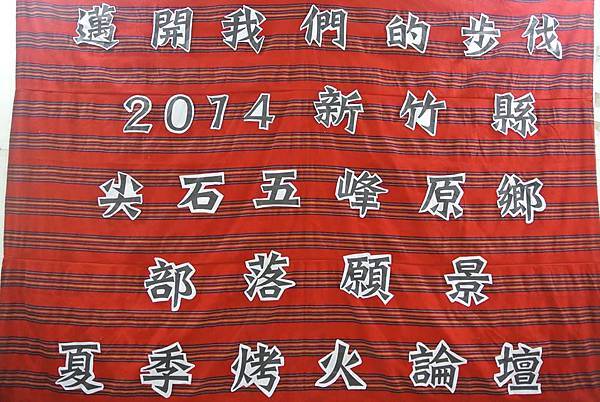 邁開我們的步伐
2014新竹縣
尖石五峰原鄉
部落願景
夏季烤火論壇